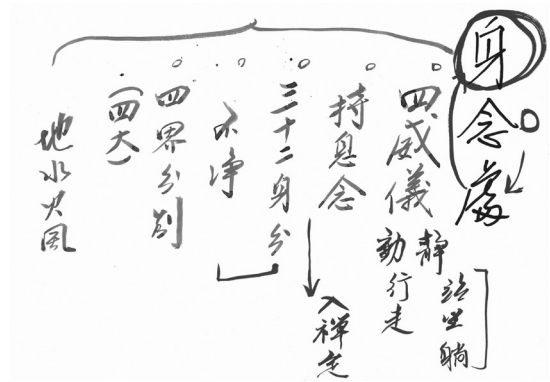 身念處
四威儀
靜 站坐躺
動 行走
持息念
入禪定
三十二身分
不淨
四界分别
(四大)
地水火風